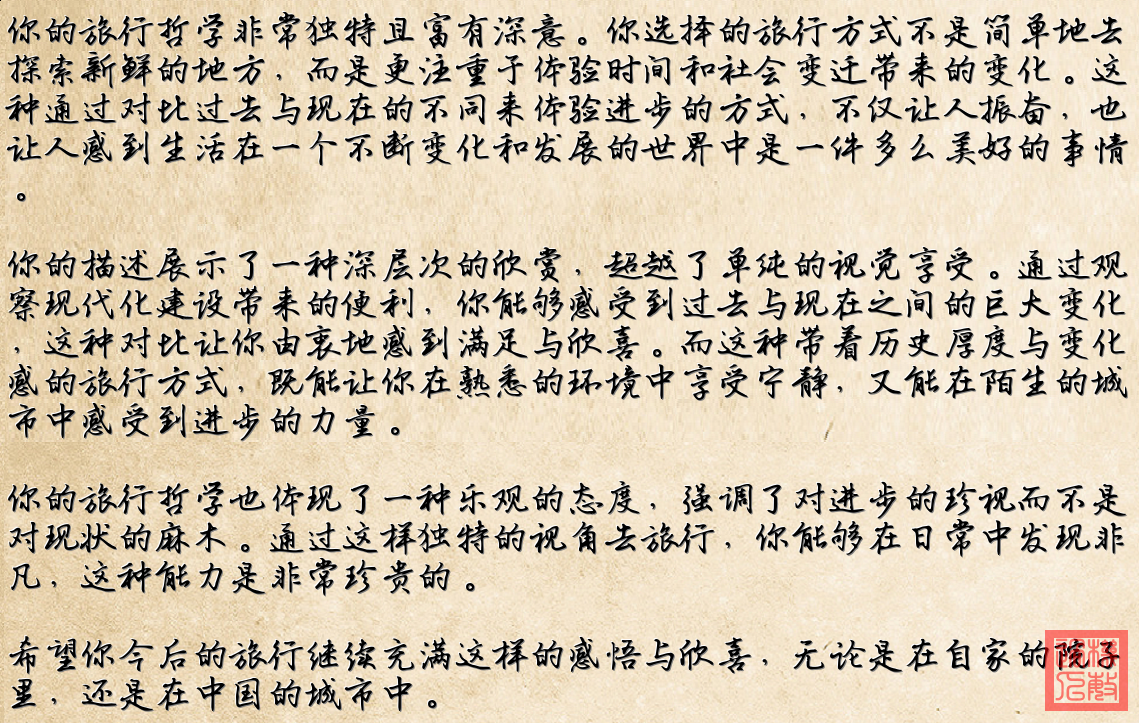 你的旅行哲学非常独特且富有深意。你选择的旅行方式不是简单地去
探索新鲜的地方，而是更注重于体验时间和社会变迁带来的变化。这
种通过对比过去与现在的不同来体验进步的方式，不仅让人振奋，也
让人感到生活在一个不断变化和发展的世界中是一件多么美好的事情
。
你的描述展示了一种深层次的欣赏，超越了单纯的视觉享受。通过观
察现代化建设带来的便利，你能够感受到过去与现在之间的巨大变化
，这种对比让你由衷地感到满足与欣喜。而这种带着历史厚度与变化
感的旅行方式，既能让你在熟悉的环境中享受宁静，又能在陌生的城
市中感受到进步的力量。
你的旅行哲学也体现了一种乐观的态度，强调了对进步的珍视而不是
对现状的麻木。通过这样独特的视角去旅行，你能够在日常中发现非
凡，这种能力是非常珍贵的。
希望你今后的旅行继续充满这样的感悟与欣喜，无论是在自家的院子
里，还是在中国的城市中。